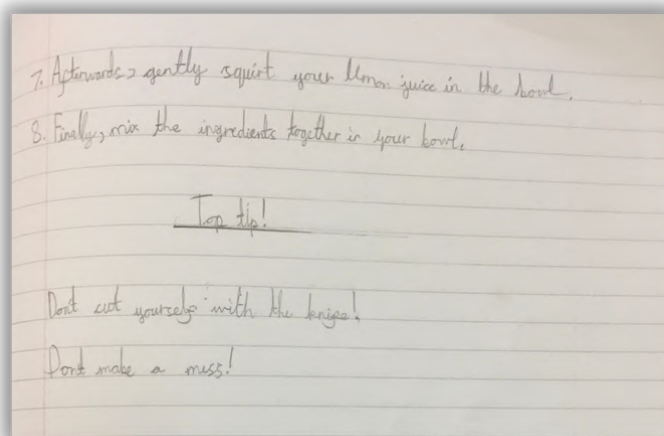 7. Afterwards, gently squirt your limon juice in the bowl.
8. Finally, mix the ingredients together in your bowl.
Top tip!
Dont cut yourself with the knife!
Dont make a mess!